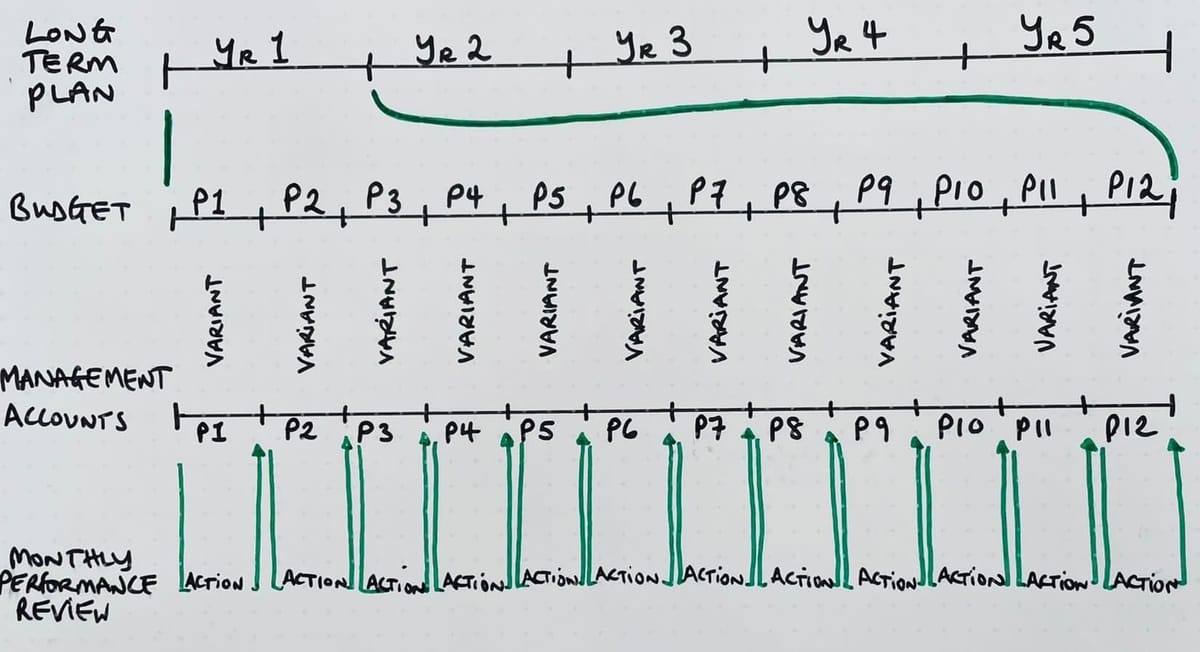 LONG
TERM
PLAN
YR 1 YR 2 YR 3 YR 4 YR 5
BUDGET P1 P2 P3 P4 P5 P6 P7 P8 P9 P10 P11 P12
VARIANT VARIANT VARIANT VARIANT VARIANT VARIANT VARIANT VARIANT VARIANT VARIANT VARIANT VARIANT
MANAGEMENT
ACCOUNTS
P1 P2 P3 P4 P5 P6 P7 P8 P9 P10 P11 P12
MONTHLY
PERFORMANCE
REVIEW
ACTION ACTION ACTION ACTION ACTION ACTION ACTION ACTION ACTION ACTION ACTION ACTION